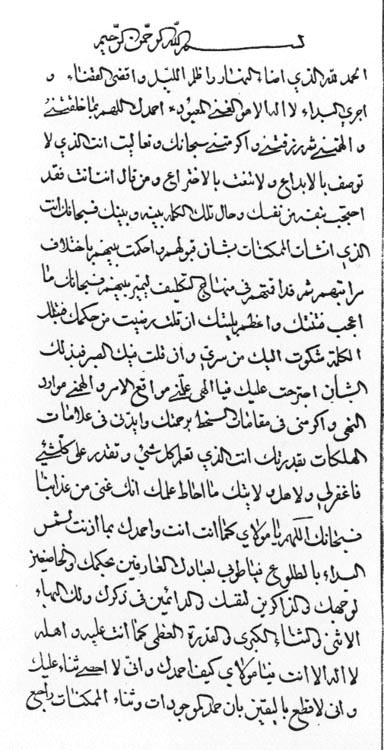 بسم الله الرحمن الرحيم
الحمد لله الذي اضاء النهار و اظلم الليل و اقضى القضاء و
اجرى البداء لا اله الا هو الغني المعبود احمدك اللهم بما خلقتني
و الهمتني ثم رزقتني و اكرمتني سبحانك و تعاليت انت الذي لا
توصف بالابداع و لا تنعت بالاختراع و من قال انت انت فقد
احتجب بنفسه عن نفسك و حال تلك الكلمة بينه و بينك فسبحانك انت
الذي انشات الممكنات بشان قبولهم و احكمت بينهم باختلاف
مراتبهم ثم قد اقمتهم في منهاج التكليف ليميز بينهم فسبحانك ما
اعجب فتنتك و اعظم بليتك ان قلت رضيت من حكمك فبتلك
الكلمة شكوت اليك من سري و ان قلت فيك الصبر فبذلك
الشان اجترحت عليك فيا الهي علمني مواقع الامر و الهمني موارد
النهى و اكرمني في مقامات السخط برحمتك و ايدني في علامات
الهلكات بقدرتك انت الذي تعلم كل شئ و تقدر على كلشئ
فاغفر لي و لاهل ولايتك ما احاط علمك انك غني عن عذابنا
فسبحانك اللهم يا مولاي كما انت انت و احمدك بما اذنت لشمس
البداء بالطلوع فيا طوبى لعبادك العارفين بحكمك و الخاضعين
لوجهك و الذاكرين لنفسك و الدائبين في ذكرك و لك البهاء
الاثنى و الثناء الكبرى و القدرة العظمى كما انت عليه و اهله
لا اله الا انت فيا مولاي كيف احمدك و اني لا احصي ثناء عليك
و اني لاقطع باليقين بان حمد الموجودات و ثناء الممكنات راجع